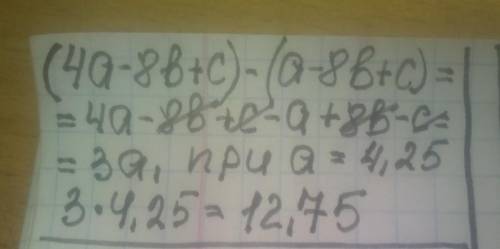 (4a-8b+c)-(a-8b+c)=
=4a-8b+c-a+8b-c=
=3a, при a=4,25
3·4,25=12,75